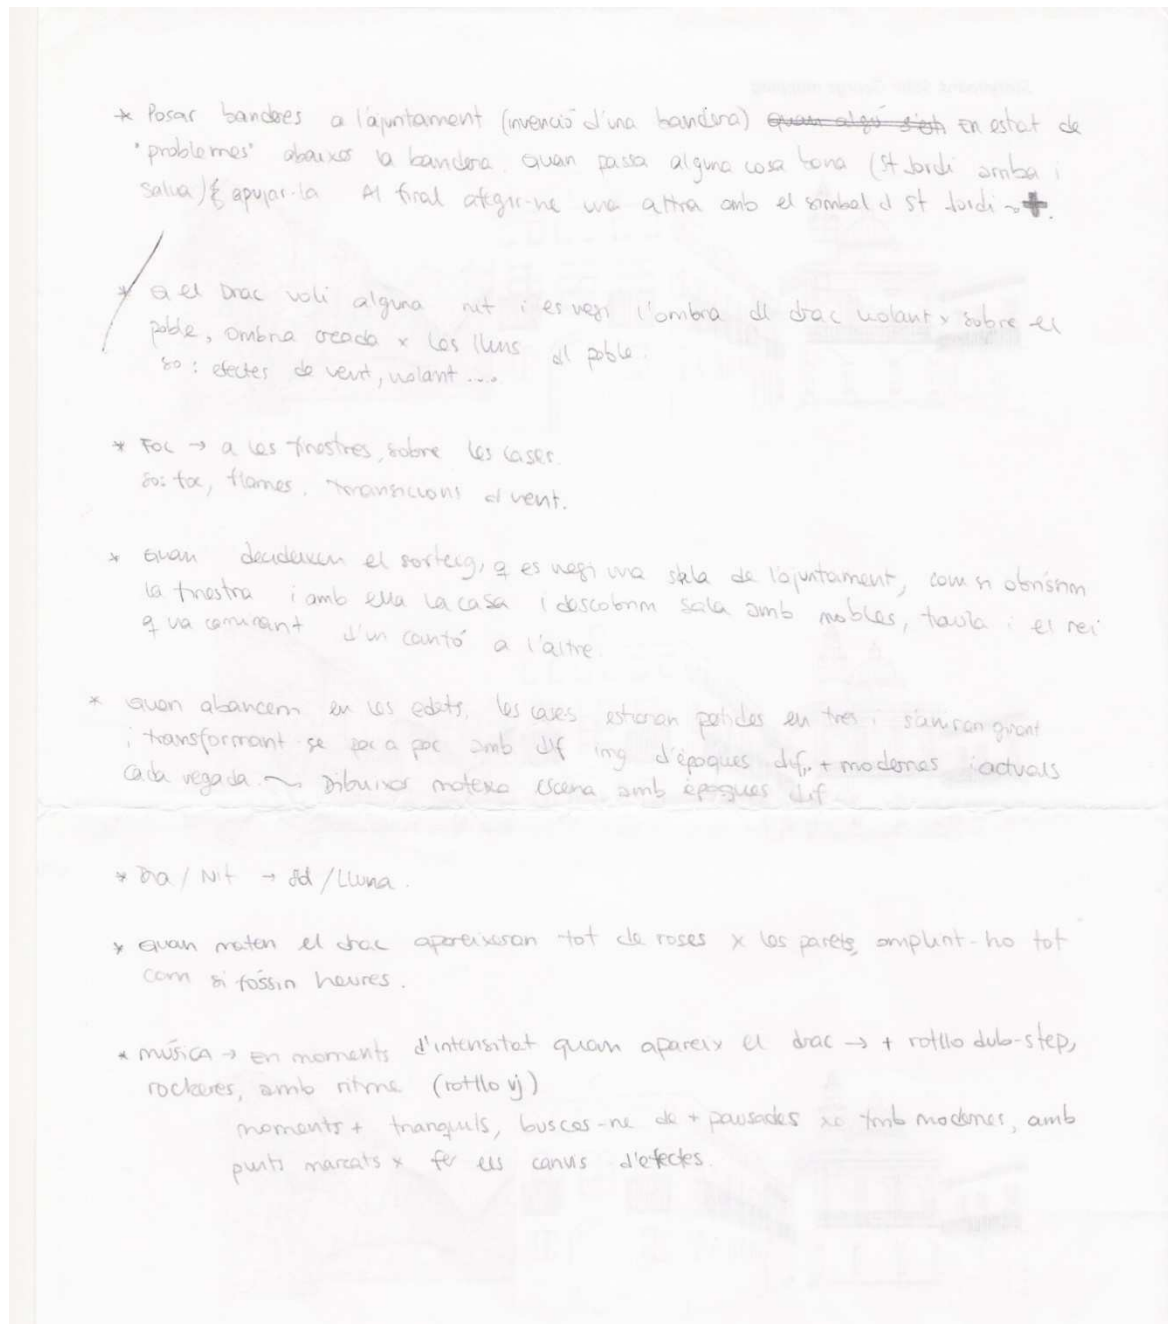 * Posar banderes a l'ajuntament (invenció d'una bandera) quan algú s'eh En estat de
"problemes" abaixar la bandera. Quan passa alguna cosa bona (St Jordi arriba i
salva) apujar-la Al final afegir-ne una altra amb el símbol d St Jordi ~> +.
* q el Drac voli alguna nit i es vegi l'ombra dl drac volant x sobre el
poble, ombra creada x les llums dl poble.
so: efectes de vent, volant ...
* Foc → a les finestres, sobre les cases.
so: foc, flames. Transicions d vent.
* Quan decideixen el sorteig, q es vegi una sala de l'ajuntament, com si obríssim
la finestra i amb ella la casa i descobrim sala amb nobles, taula i el rei
q va caminant d'un cantó a l'altre.
* Quan abancem en les edats, les cases estaran partides en tres i s'aniran girant
i transformant-se poc a poc amb dif img d'èpoques dif, + modernes i actuals
cada vegada. ~> Dibuixos mateixa escena amb èpoques dif.
* Dia / Nit → Sol / Lluna.
* Quan maten el drac apareixeran tot de roses x les parets, omplint-ho tot
com si fossin heures.
* música → En moments d'intensitat quan apareix el drac → + rotllo dub-step,
rockeres, amb ritme (rotllo vj)
moments + tranquils, buscar-ne de + pausades xo tmb modernes, amb
punts marcats x fer els canvis d'efectes.